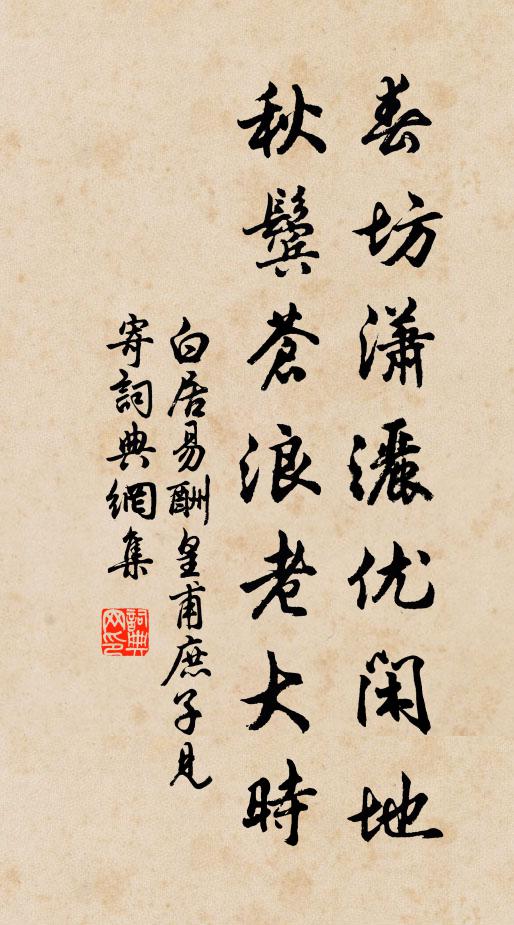 春坊瀟灑优閑地
秋鬢蒼浪老大時
白居易酬皇甫庶子見
寄詞典網集
詞典
网印